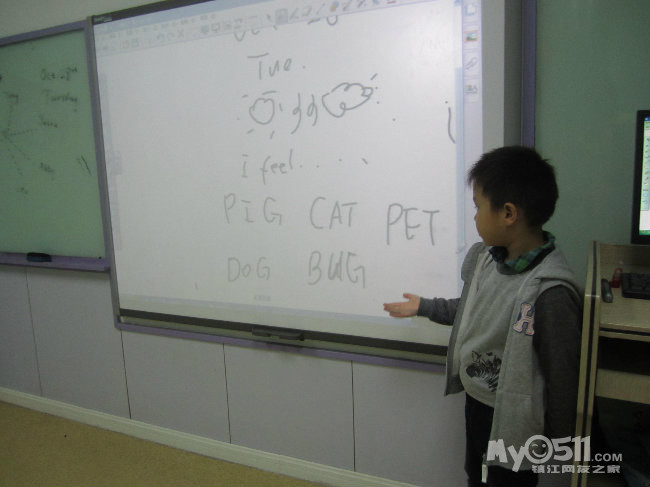 Tue.
I feel.....
PIG CAT PET
DOG BUG
My0511.COM
镇江网友之家